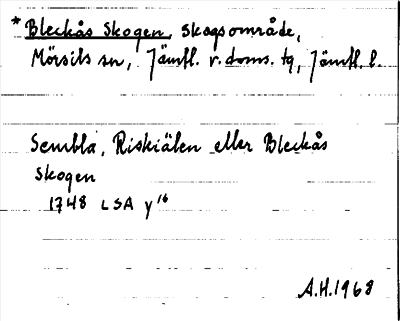 * Bleckås Skogen, skogsområde,
Mörsils sn, Jämtl. v. doms. tg, Jämtl. l.
Sembla, Riskiälen eller Bleckås
Skogen
1748 LSA Y 16
A.H. 1968